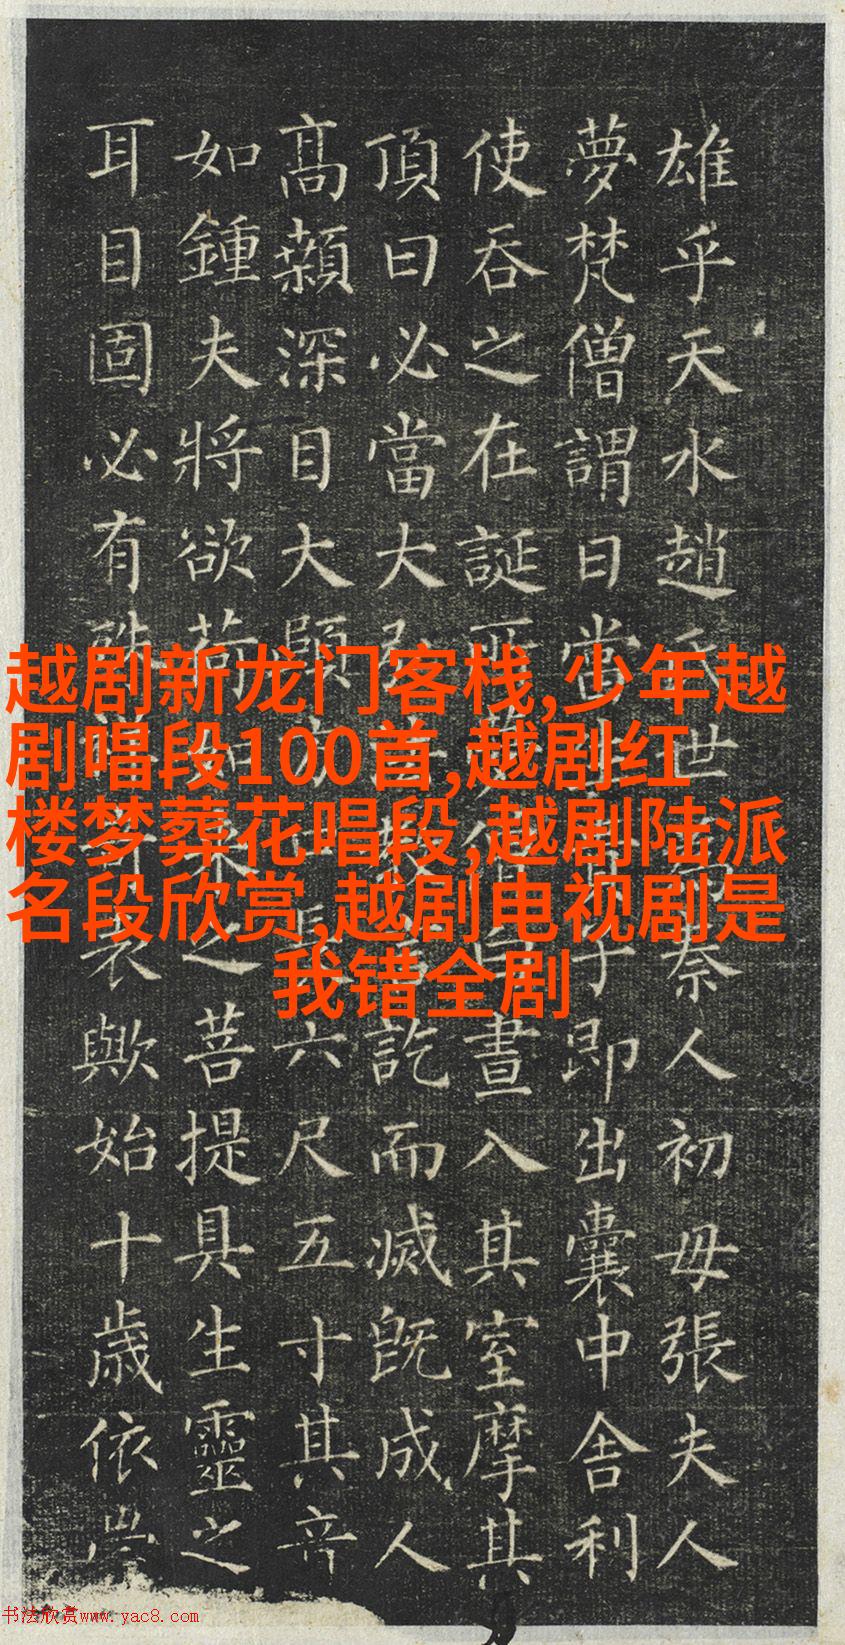 越剧新龙门客栈,少年越
剧唱段100首,越剧红
楼梦葬花唱段,越剧陆派
名段欣赏,越剧电视剧是
我错全剧
雄乎天水趙氏世為秦人初母張夫人
夢梵僧謂曰當生貴子即出囊中舍利
使吞之在誕所夢僧白晝入其室摩其
頂曰必當大弘法教言訖而滅既成人
高顙深目大頤方口長六尺五寸其音
如鍾夫將欲荷如來之菩提具生靈之
耳目固必有殊祥奇表歟始十歲依
书法欣赏www.yac8.com